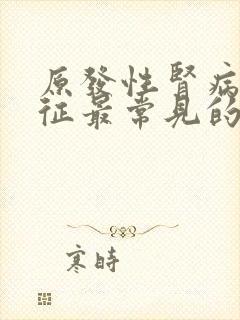 原發性腎病
征最常見的
寒時